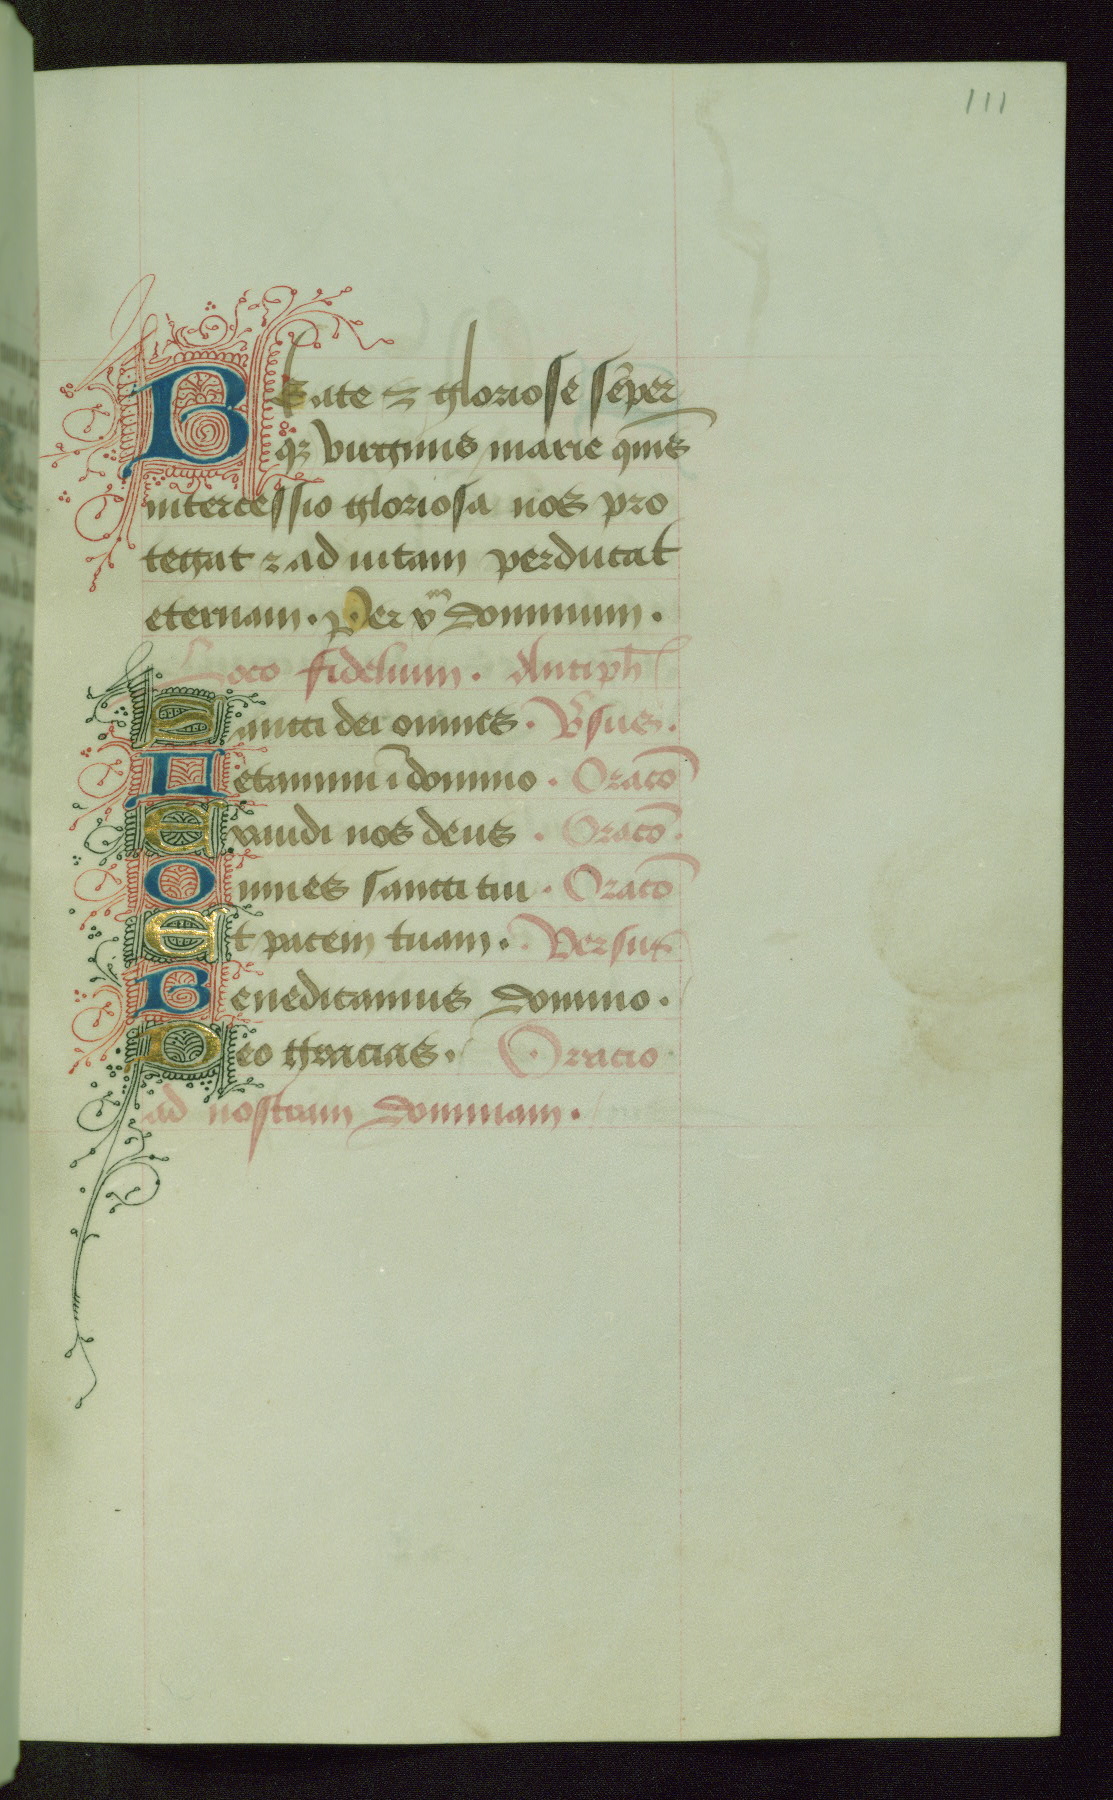 111
Beate ⁊ gloriose semper
qꝫ virginis marie quis
intercessio gloriosa nos pro
tegat ⁊ ad uitam perducat
eternam. Per xᵐ dominum.
Loco fidelium. Antiph
Sancti dei omnes. Vsus.
Letamini ī domino. Oracō
Exaudi nos deus. Oracō.
Omnes sancti tui. Oracō
Et pacem tuam. Versus
Benedicamus domino.
Deo gracias. Oracio
ad nostram dominam.